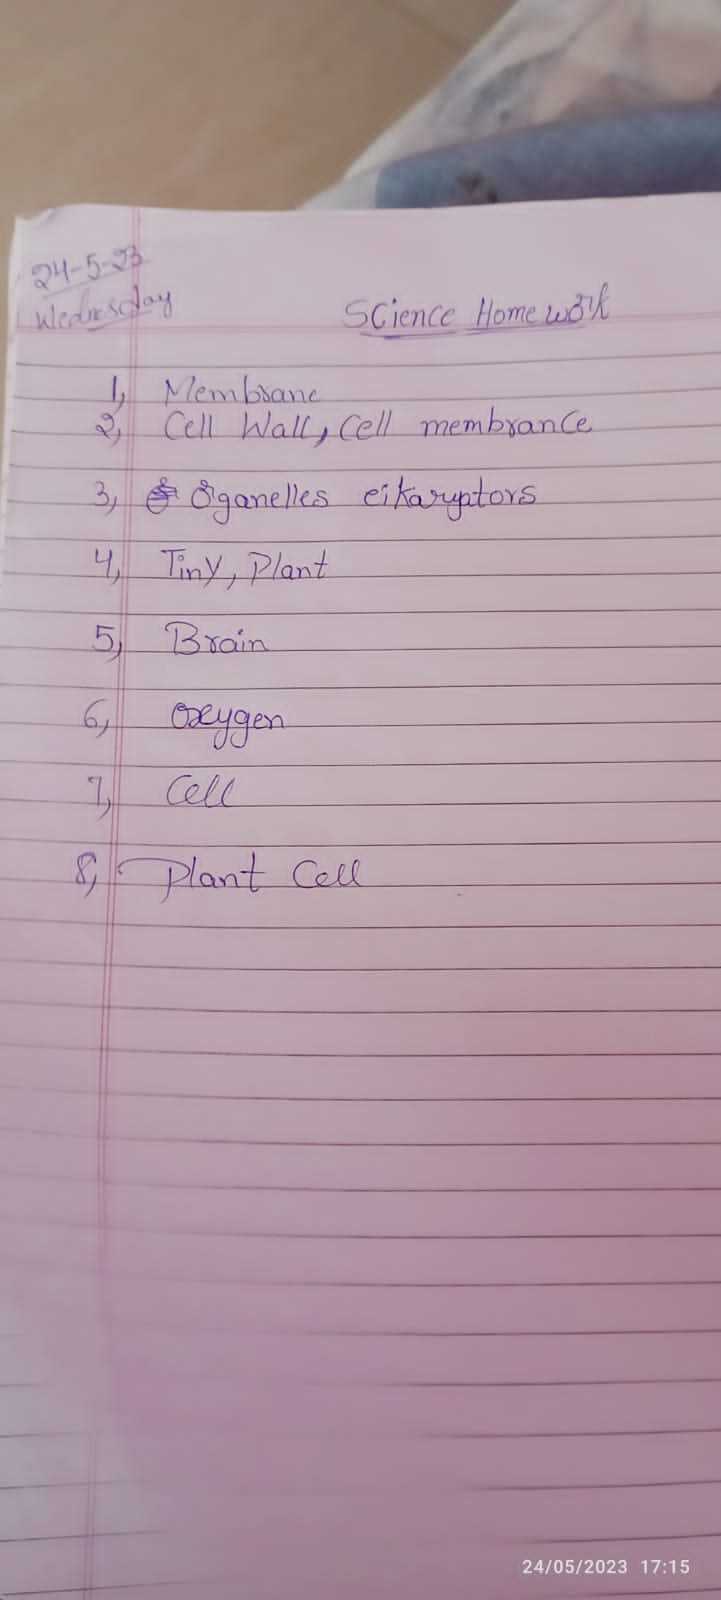 24-5-23
Wednesday
Science Homework
1, Membrane
2, Cell Wall, Cell membrance
3, Organelles eikaryptors
4, Tiny, Plant
5, Brain
6, Oxygen
7, Cell
8, Plant Cell
24/05/2023 17:15